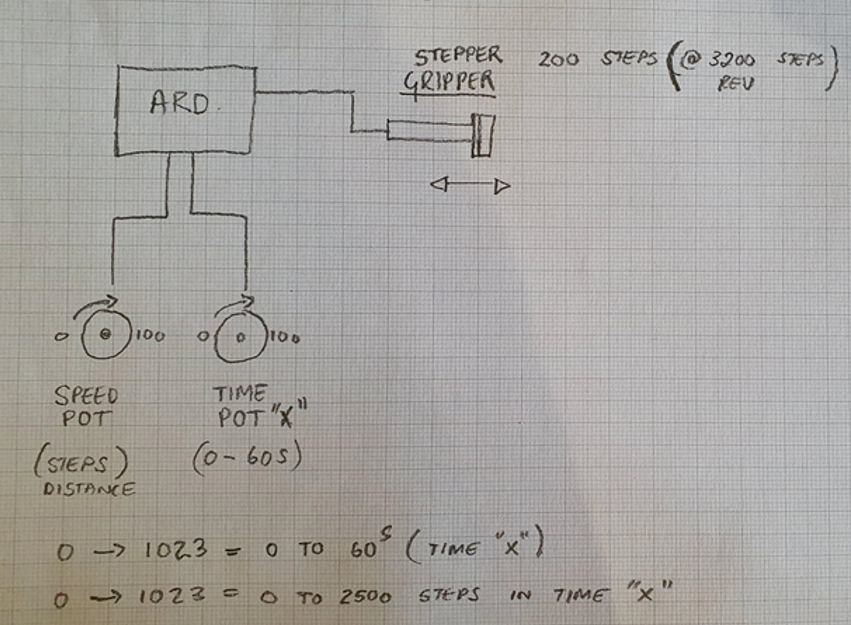 STEPPER 200 STEPS (@ 3200 STEPS)
GRIPPER REV
ARD.
0 100 0 100
SPEED TIME
POT POT "X"
(STEPS) (0-60S)
DISTANCE
0 → 1023 = 0 TO 60S (TIME "X")
0 → 1023 = 0 TO 2500 STEPS IN TIME "X"